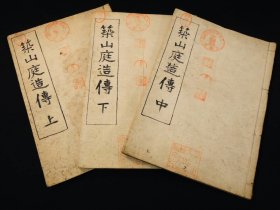 築山庭造傳 上
築山庭造傳 下
築山庭造傳 中